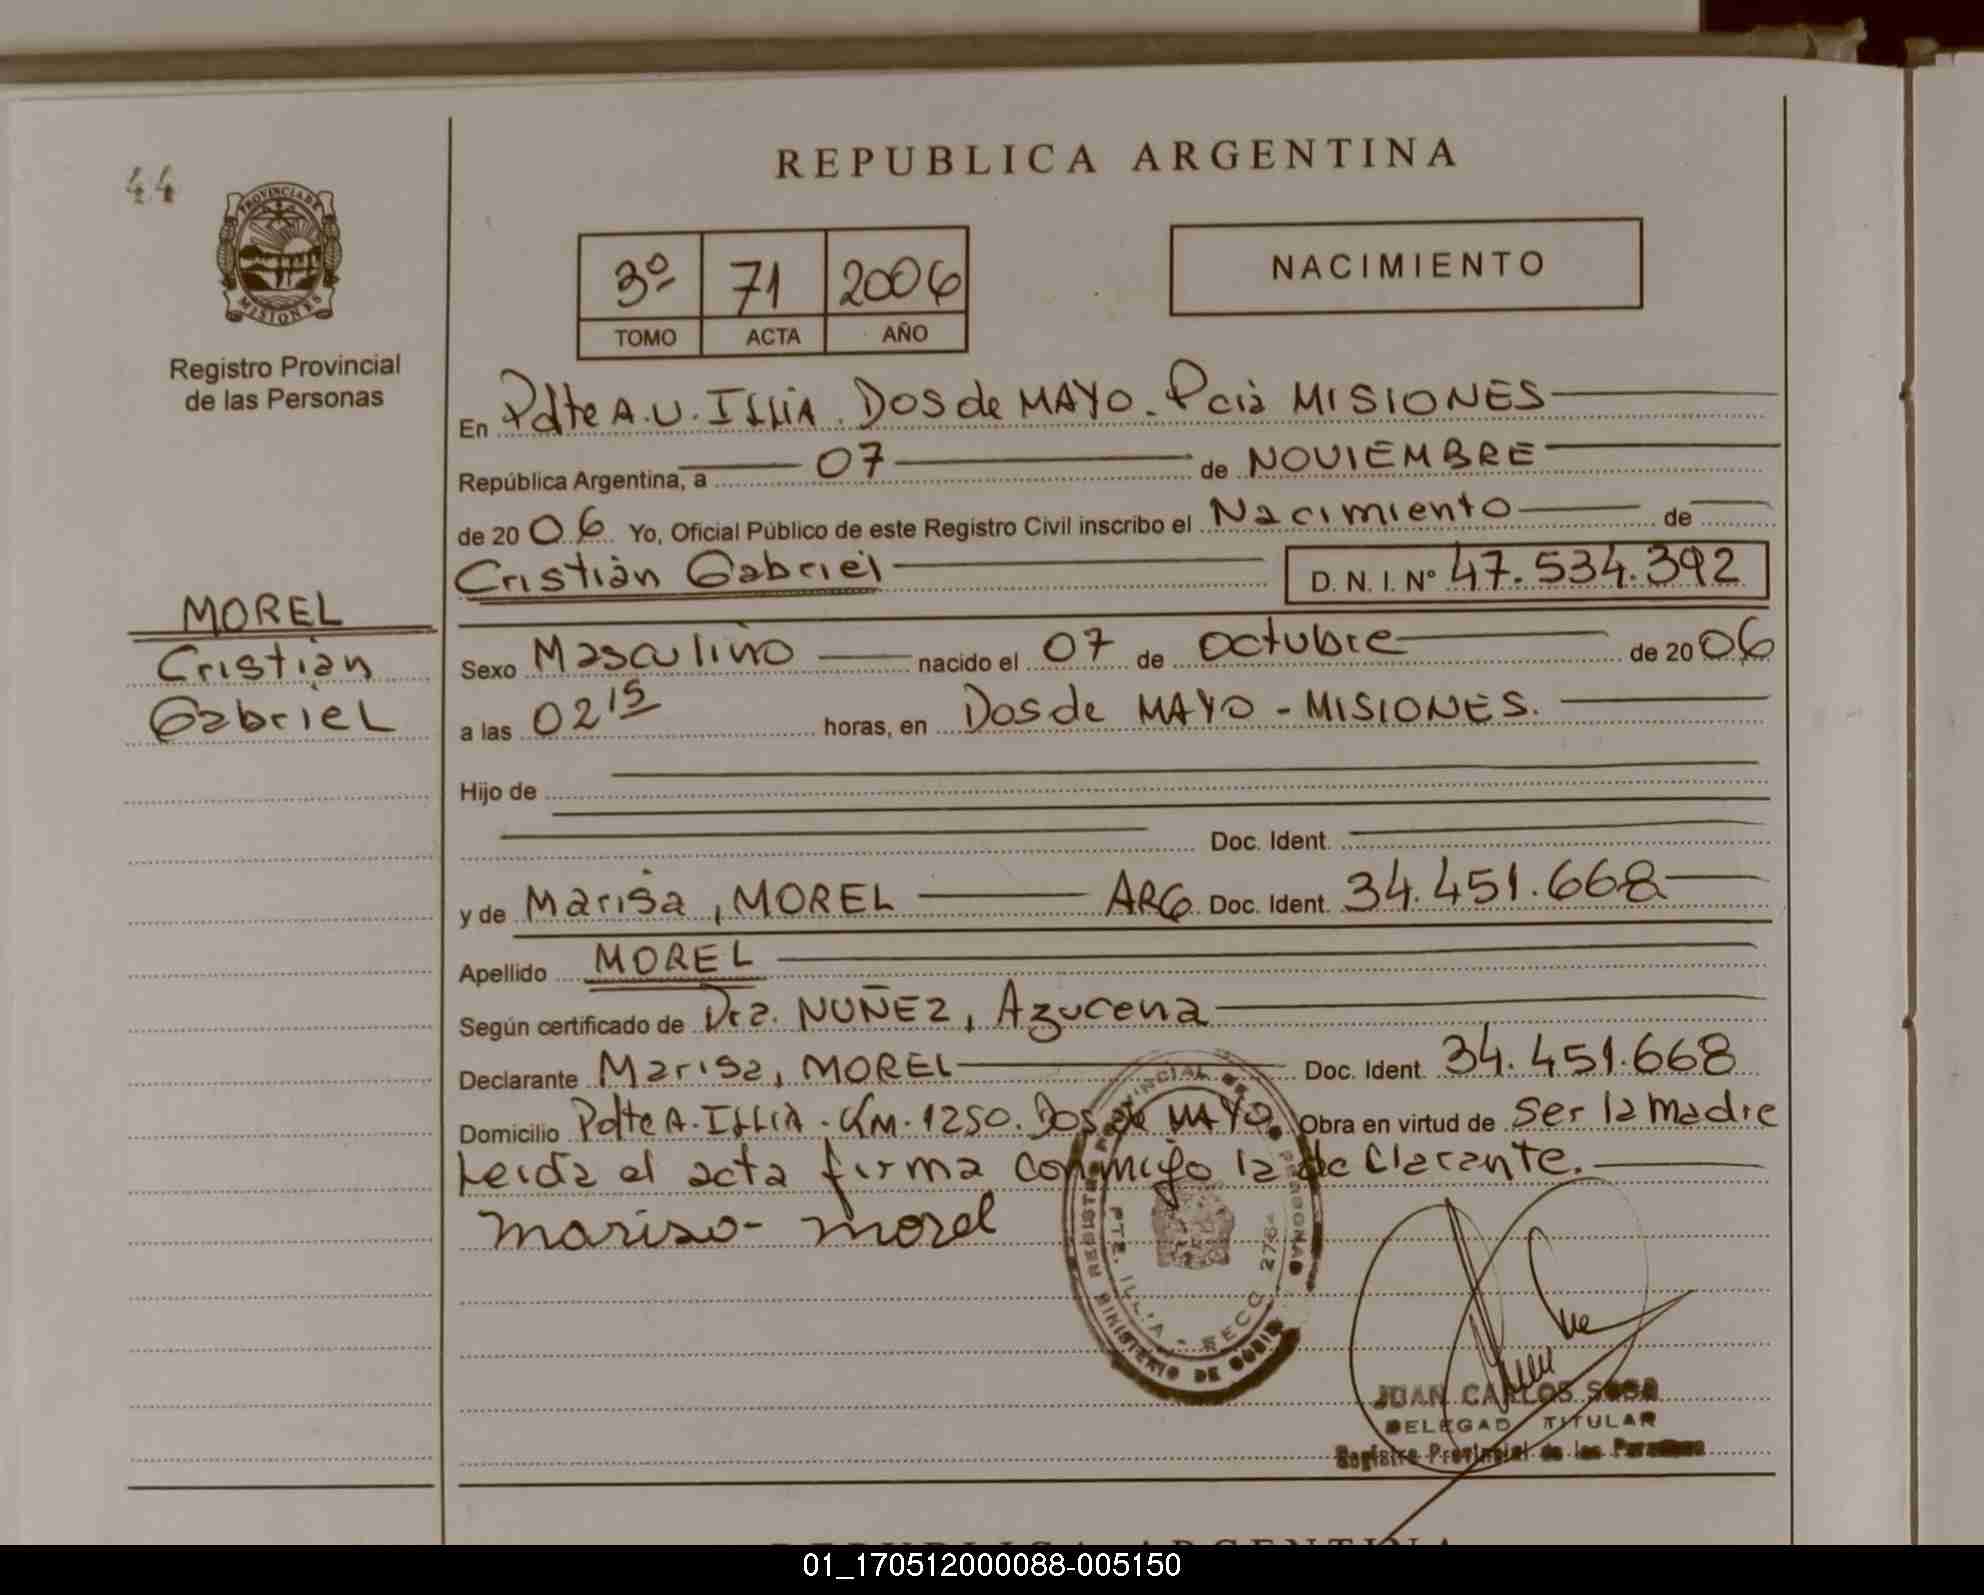 REPUBLICA ARGENTINA
44
PROVINCIA DE
MISIONES
Registro Provincial
de las Personas
3º 71 2006
TOMO ACTA AÑO
NACIMIENTO
En Pdte A.U. ILLIA. Dos de MAYO. Pcia MISIONES
República Argentina, a 07 de NOVIEMBRE
de 2006 Yo, Oficial Público de este Registro Civil inscribo el Nacimiento de
Cristian Gabriel D. N. I. Nº 47.534.392
MOREL
Cristian
Gabriel
Sexo Masculino nacido el 07 de Octubre de 2006
a las 02 15 horas, en Dos de MAYO - MISIONES.
Hijo de
Doc. Ident.
y de Marisa, MOREL ARG Doc. Ident. 34.451.668
Apellido MOREL
Según certificado de Dra. NUÑEZ, Azucena
Declarante Marisa, MOREL Doc. Ident. 34.451.668
Domicilio Pdte A. ILLIA. KM. 1250. Dos de MAYO Obra en virtud de Ser la Madre
Leida el acta firma conmigo la declarante.
mariso- morel
REGISTRO PROVINCIAL DE PERSONAS
PTE. ILLIA - SECC.
MINISTERIO DE
JUAN CARLOS SOSA
DELEGAD TITULAR
Registro Provincial de las Personas
REPUBLICA ARGENTINA
01_170512000088-005150